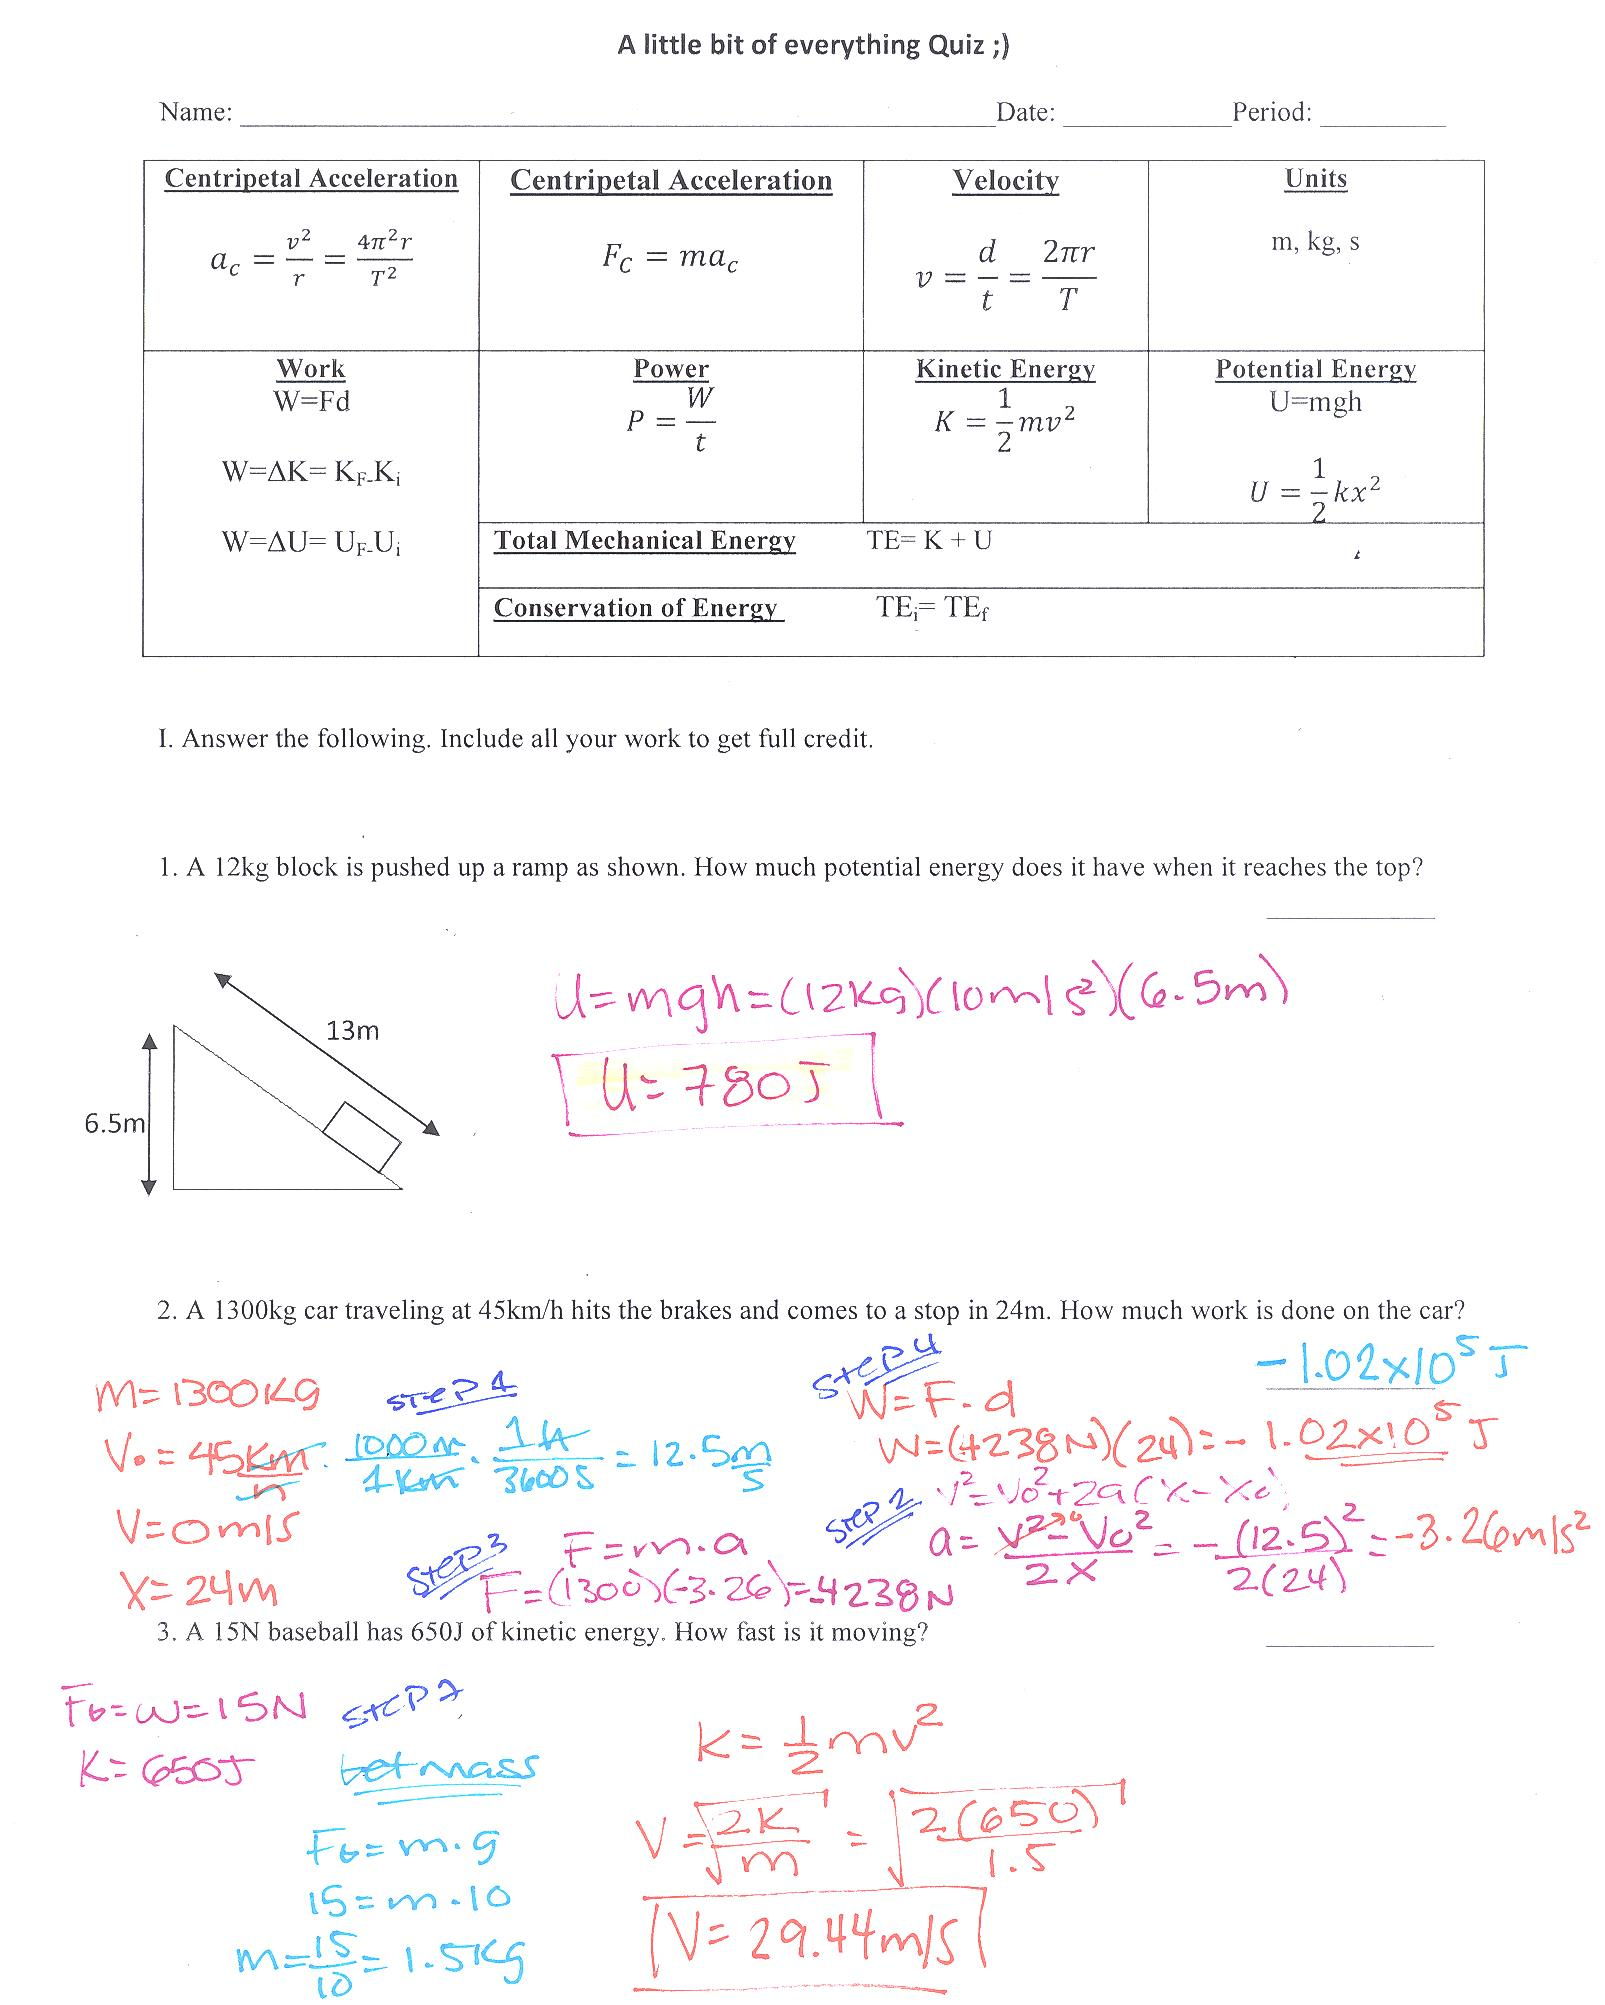 A little bit of everything Quiz ;)
Name: ____ Date: ____ Period: ____
Centripetal Acceleration
a_c = v²/r = 4π²r/T²
Centripetal Acceleration
F_C = ma_c
Velocity
v = d/t = 2πr/T
Units
m, kg, s
Work
W=Fd
W=ΔK= K_F-K_i
W=ΔU= U_F-U_i
Power
P = W/t
Kinetic Energy
K = 1/2 mv²
Potential Energy
U=mgh
U = 1/2 kx²
Total Mechanical Energy TE= K + U
Conservation of Energy TE_i= TE_f
I. Answer the following. Include all your work to get full credit.
1. A 12kg block is pushed up a ramp as shown. How much potential energy does it have when it reaches the top?
13m
6.5m
U=mgh=(12Kg)(10m/s²)(6.5m)
U=780J
2. A 1300kg car traveling at 45km/h hits the brakes and comes to a stop in 24m. How much work is done on the car?
-1.02x10⁵ J
M=1300Kg
V₀=45Km/h · 1000m/1Km · 1h/3600s = 12.5m/s
V=0m/s
X=24m
STEP 1
STEP 4
W=F·d
W=(4238N)(24)=-1.02x10⁵ J
STEP 2
V²=V₀²+2a(X-X₀)
a= V²-V₀²/2X = -(12.5)²/2(24) = -3.26m/s²
STEP 3
F=m.a
F=(1300)(-3.26)=-4238N
3. A 15N baseball has 650J of kinetic energy. How fast is it moving?
FG=W=15N
K=650J
STEP 1
Get mass
FG=m.g
15=m.10
m=15/10=1.5Kg
K=1/2 mv²
V=√2K/m = √2(650)/1.5
V=29.44m/s